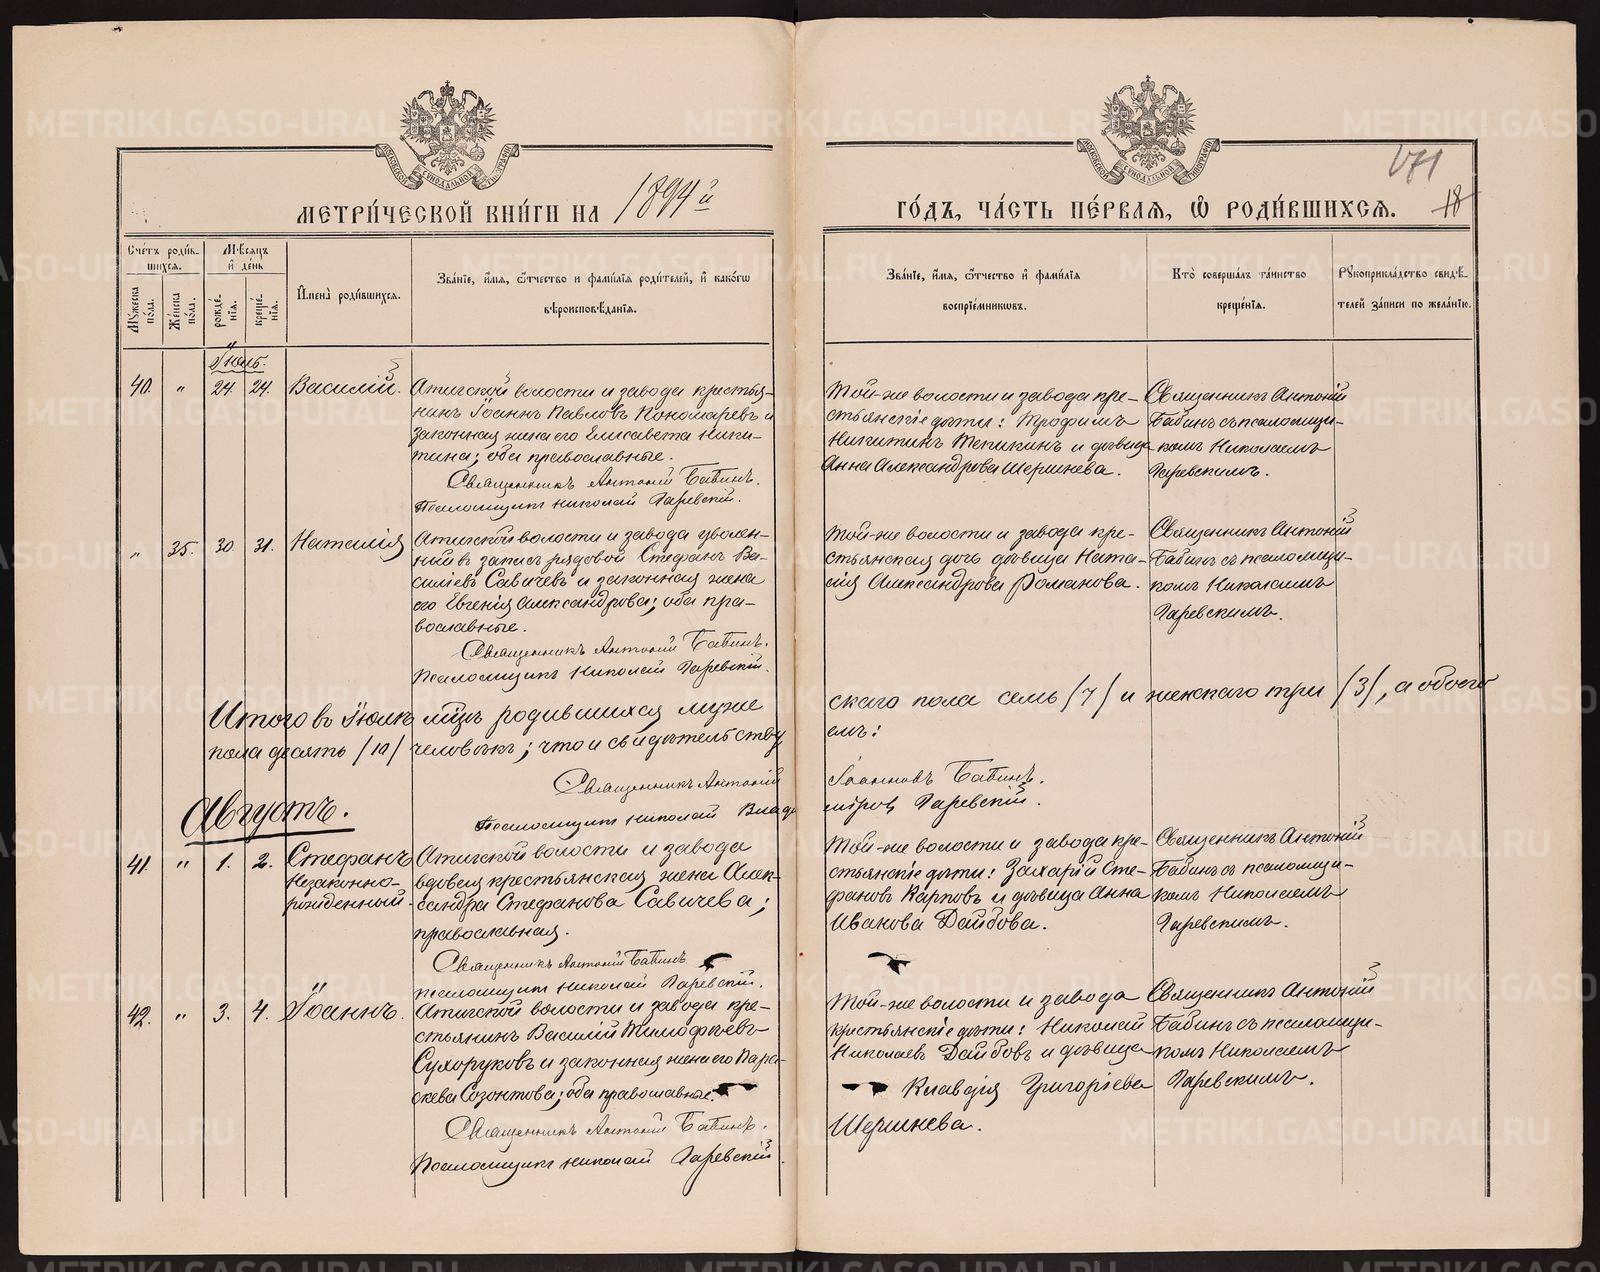 МЕТРИ́ЧЕСКОЙ КНИ́ГИ НА 1894й
ГО́ДЪ, ЧА́СТЬ ПЕ́РВАЯ, Ѽ РОДИ́ВШИХСЯ.
18
Сче́тъ роди́в-
шихся.
Му́жеска по́ла.
Же́нска по́ла.
Мѣсяцъ
и де́нь
рожде́нія.
креще́нія.
Имена̀ роди́вшихся.
Зва́ніе, и́мя, ѻ́тчество и фами́лія роди́телей, и како́гѡ
вѣроисповѣданія.
Зва́ніе, и́мя, ѻ́тчество и фами́лія
воспріе́мниковъ.
Кто̀ соверша́лъ та́инство
креще́нія.
Рукоприкла́дство свидѣ-
телей за́писи по жела́нію.
Іюль.
40. " 24 24. Василій.
Атигской волости и завода крестья-
нинъ Іоаннъ Павловъ Пономаревъ и
законная жена его Елисавета Ники-
тина; оба православные.
Священникъ Антоній Бабинъ.
Псаломщикъ Николай Гаревскій.
Той-же волости и завода кре-
стьянскіе дѣти: Трофимъ
Никитинъ Пепикинъ и дѣвица
Анна Александрова Шершнева.
Священникъ Антоній
Бабинъ съ псаломщи-
комъ Николаемъ
Гаревскимъ.
" 35. 30. 31. Наталія
Атигской волости и завода уволен-
ный въ запасъ рядовой Стефанъ Ва-
силіевъ Савичевъ и законная жена
его Евгенія Александрова; оба пра-
вославные.
Священникъ Антоній Бабинъ.
Псаломщикъ Николай Гаревскій.
Той-же волости и завода кре-
стьянская дочь дѣвица Ната-
лія Александрова Романова.
Священникъ Антоній
Бабинъ съ псаломщи-
комъ Николаемъ
Гаревскимъ.
Итого въ Іюлѣ м͠цѣ родившихся муже
скаго пола семь /7/ и женскаго три /3/, а обоего
пола десять /10/ человѣкъ; что и свидѣтельству
емъ:
Священникъ Антоній
Іоанновъ Бабинъ.
Псаломщикъ Николай Влади
міровъ Гаревскій.
Августъ.
41. " 1. 2. Стефанъ
Незаконно-
рожденный.
Атигской волости и завода
вдовая крестьянская жена Алек-
сандра Стефанова Савичева;
православная.
Священникъ Антоній Бабинъ
Псаломщикъ Николай Гаревскій.
Той-же волости и завода кре-
стьянскіе дѣти: Захарій Сте-
фановъ Карповъ и дѣвица Анна
Иванова Дайбова.
Священникъ Антоній
Бабинъ съ псаломщи-
комъ Николаемъ
Гаревскимъ.
42. " 3. 4. Іоаннъ.
Атигской волости и завода кре-
стьянинъ Василій Тимофѣевъ
Сухоруковъ и законная жена его Пара-
скева Созонтова; оба православные.
Священникъ Антоній Бабинъ.
Псаломщикъ Николай Гаревскій.
Той-же волости и завода
крестьянскіе дѣти: Николай
Николаевъ Дайбовъ и дѣвица
Клавдія Григоріева
Шершнева.
Священникъ Антоній
Бабинъ съ псаломщи-
комъ Николаемъ
Гаревскимъ.
METRIKI.GASO-URAL.RU